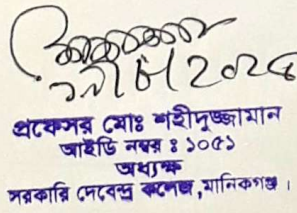 প্রফেসর মোঃ শহীদুজ্জামান
আইডি নম্বর : ১০৫১
অধ্যক্ষ
সরকারি দেবেন্দ্র কলেজ, মানিকগঞ্জ ।